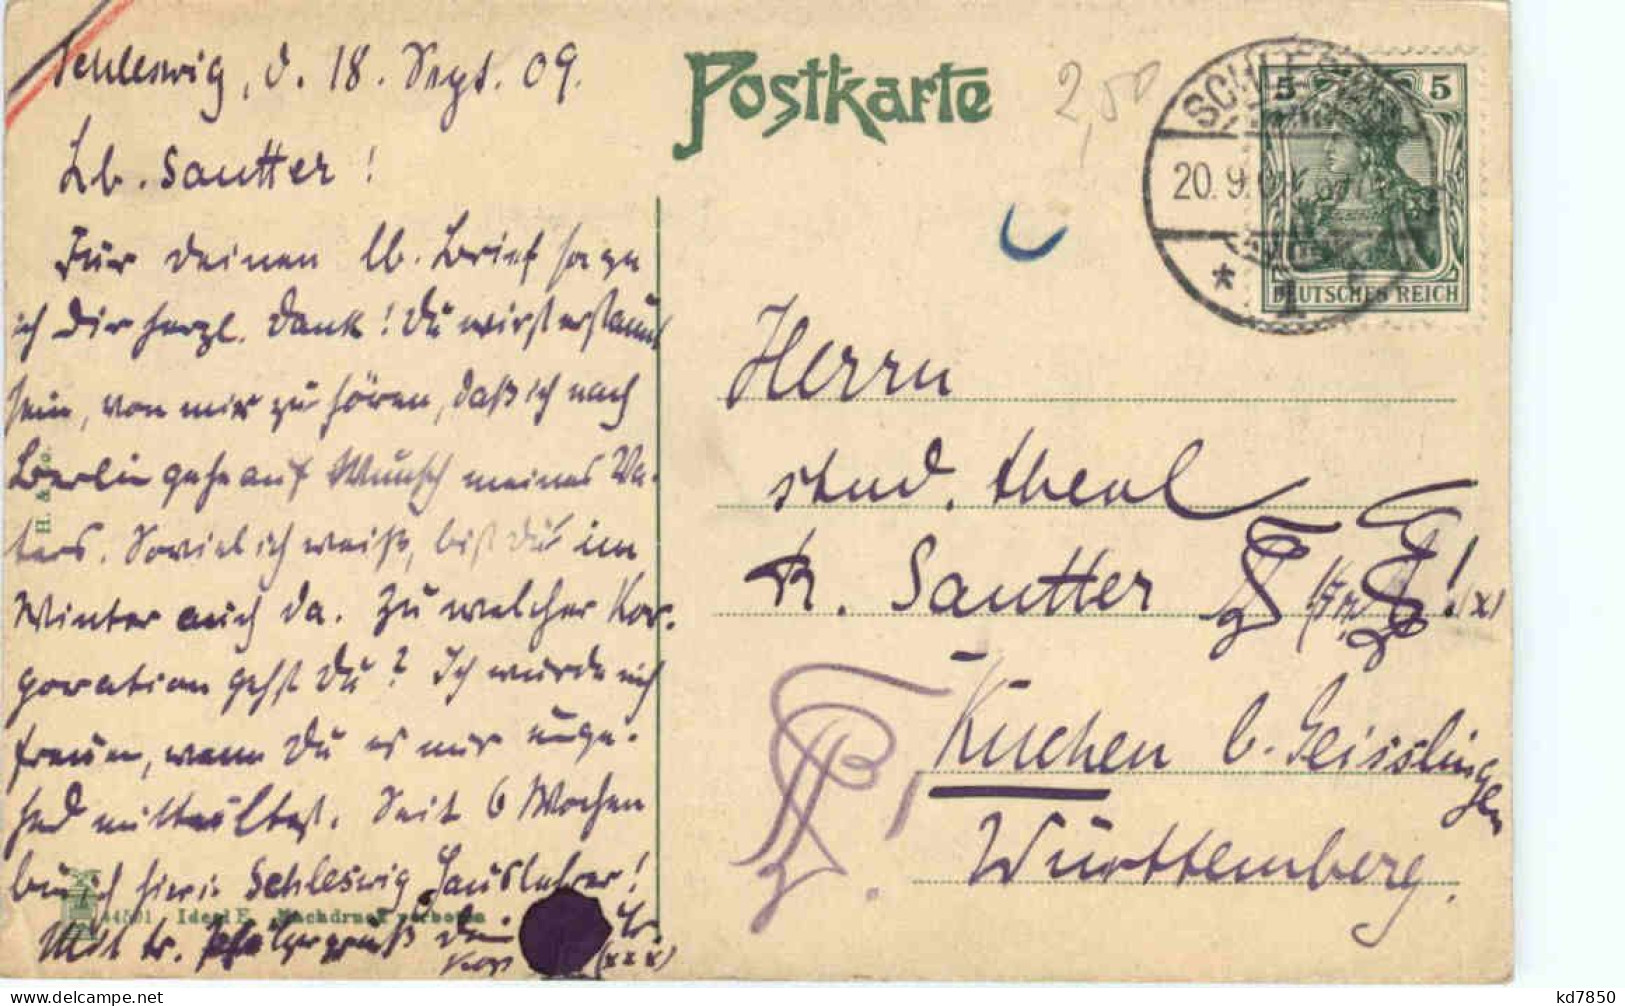 Schleswig, d. 18. Sept. 09.
Lb. Sautter!
Für deinen lb. Brief sage
ich Dir herzl. Dank! Du wirst erstaunt
sein, von mir zu hören, daß ich nach
Berlin gehe auf Wunsch meines Va-
ters. Soviel ich weiß, bist Du im
Winter auch da. Zu welcher Kor-
poration gehst Du? Ich würde mich
freuen, wenn Du es mir umge-
hend mitteiltest. Seit 6 Wochen
bin ich hier in Schleswig Hauslehrer!
Mit tr. dein
(xxx)
Postkarte
2,50
SCHLESWIG
20. 9. 09
* 1
5 5
DEUTSCHES REICH
Herrn
stud. theol
R. Sautter ! (x)
Kuchen b. Geisslingen
Württemberg.
H. &
44501 Ideal E. Nachdruck verboten
kd7850